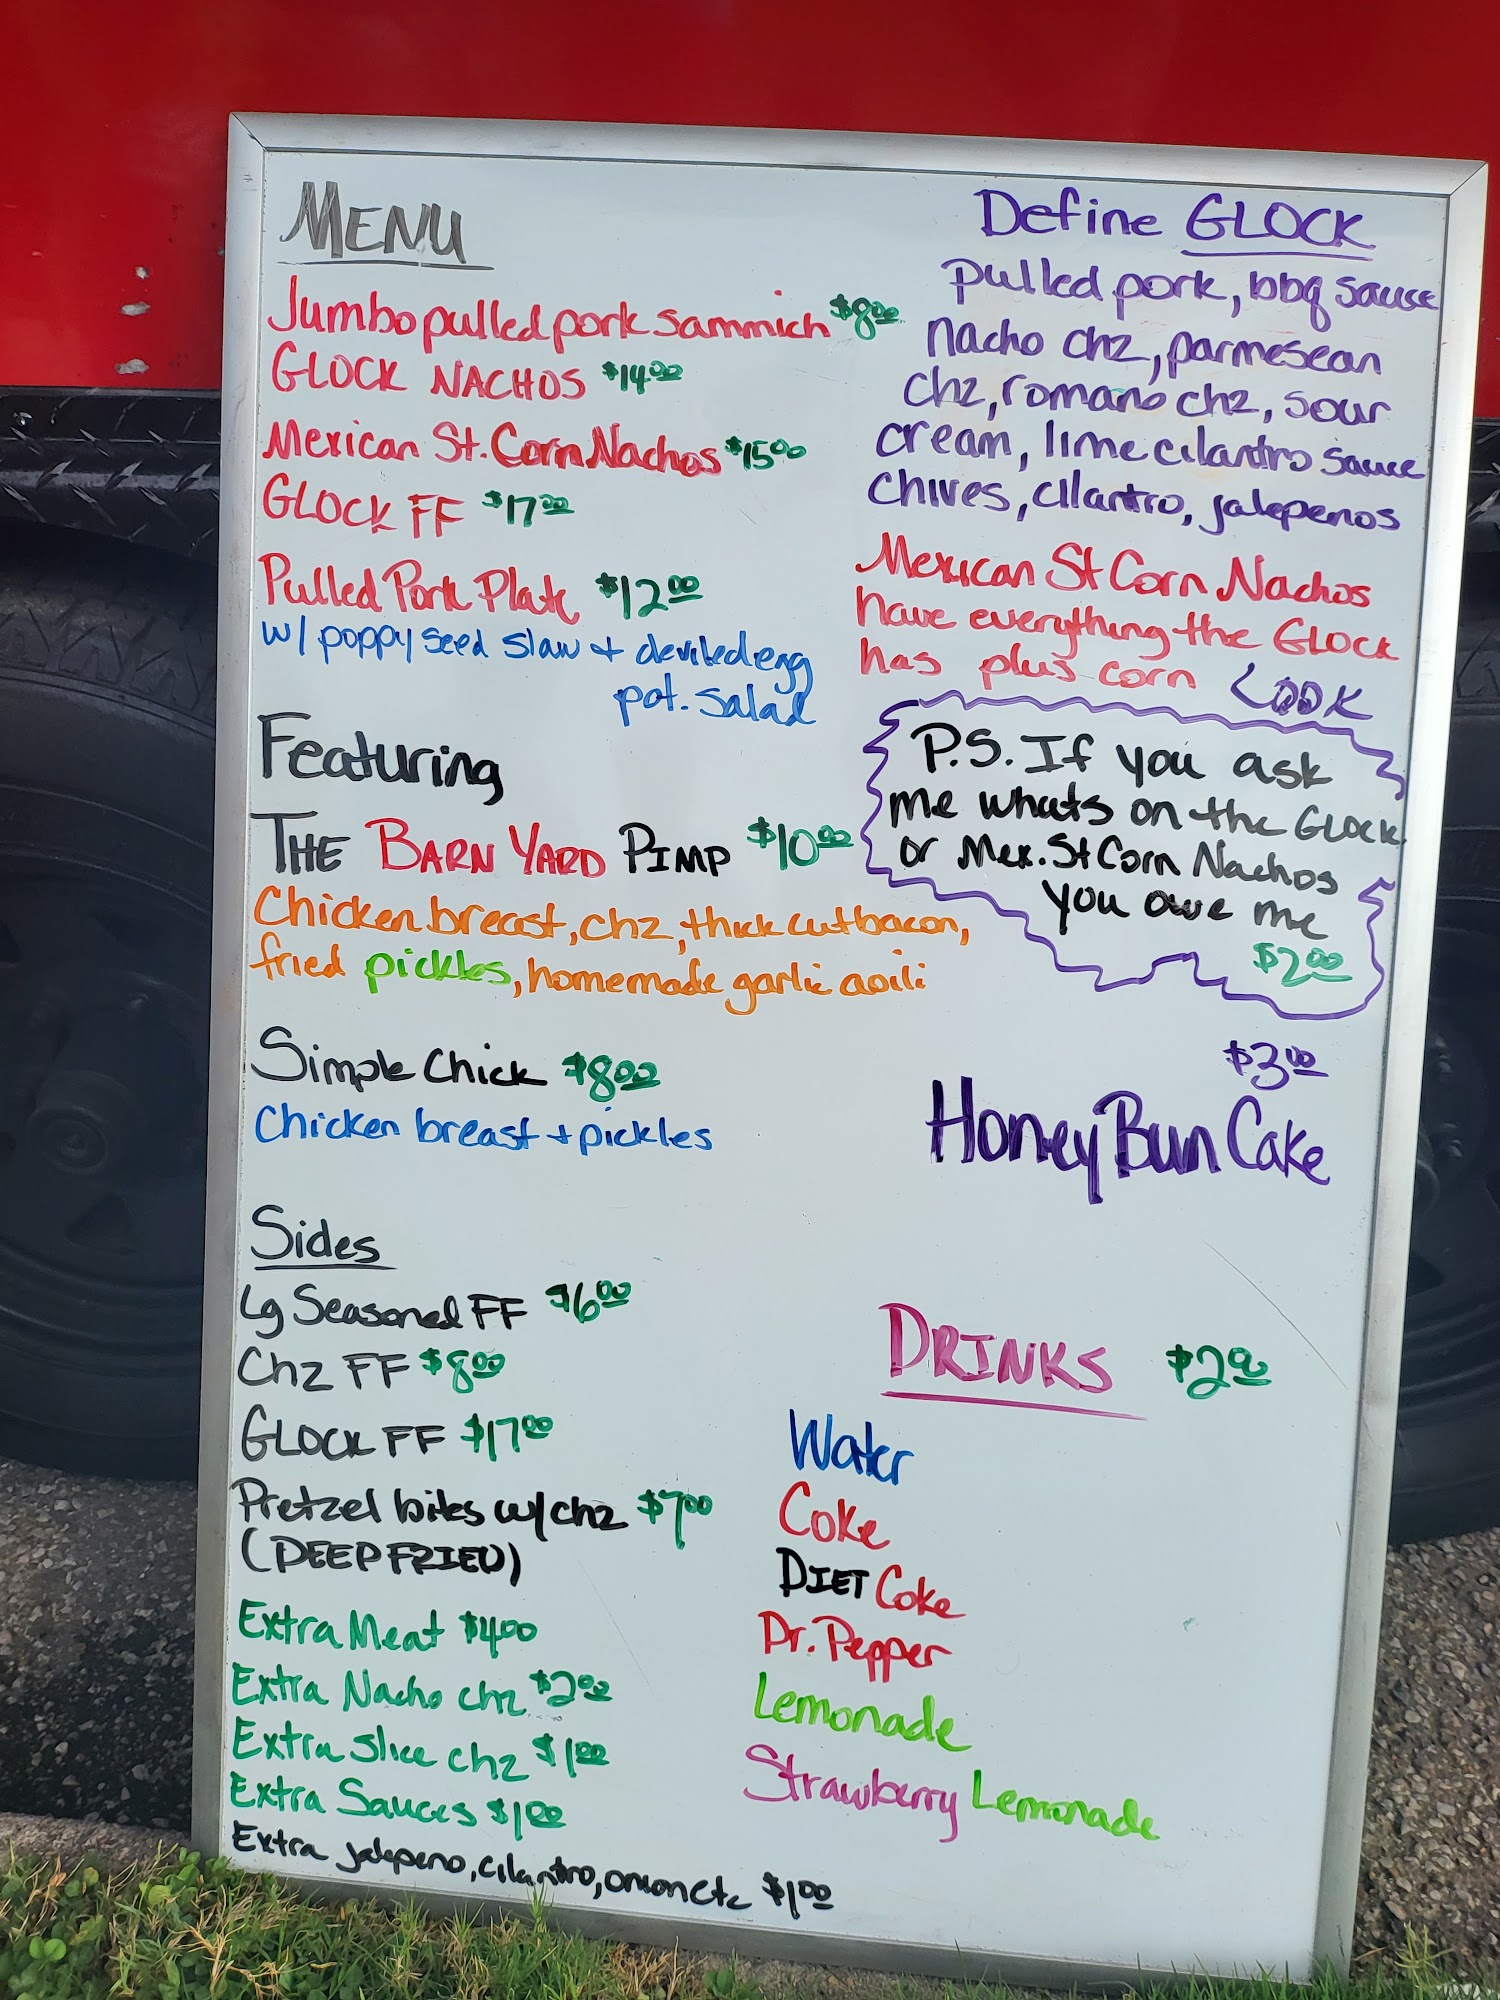 MENU
Jumbo pulled pork sammich $8.00
GLOCK NACHOS $14.00
Mexican St. Corn Nachos $15.00
GLOCK FF $17.00
Pulled Pork Plate $12.00
w/ poppy seed slaw + deviled egg
pot. salad
Featuring
THE BARN YARD PIMP $10.00
Chicken breast, chz, thick cut bacon,
fried pickles, homemade garlic aoili
Simple Chick $8.00
Chicken breast + pickles
Sides
Lg Seasoned FF $6.00
Chz FF $8.00
GLOCK FF $17.00
Pretzel bites w/ chz $7.00
(DEEP FRIED)
Extra Meat $4.00
Extra Nacho chz $2.00
Extra slice chz $1.00
Extra Sauces $1.00
Extra jalepeno, cilantro, onion etc $1.00
Define GLOCK
pulled pork, bbq sauce
nacho chz, parmesean
chz, romano chz, sour
cream, lime cilantro sauce
chives, cilantro, jalepenos
Mexican St Corn Nachos
have everything the GLOCK
has plus corn
LOOK
P.S. If you ask
me whats on the GLOCK
or Mex. St Corn Nachos
you owe me
$2.00
$3.00
Honey Bun Cake
DRINKS $2.00
Water
Coke
DIET Coke
Dr. Pepper
Lemonade
Strawberry Lemonade